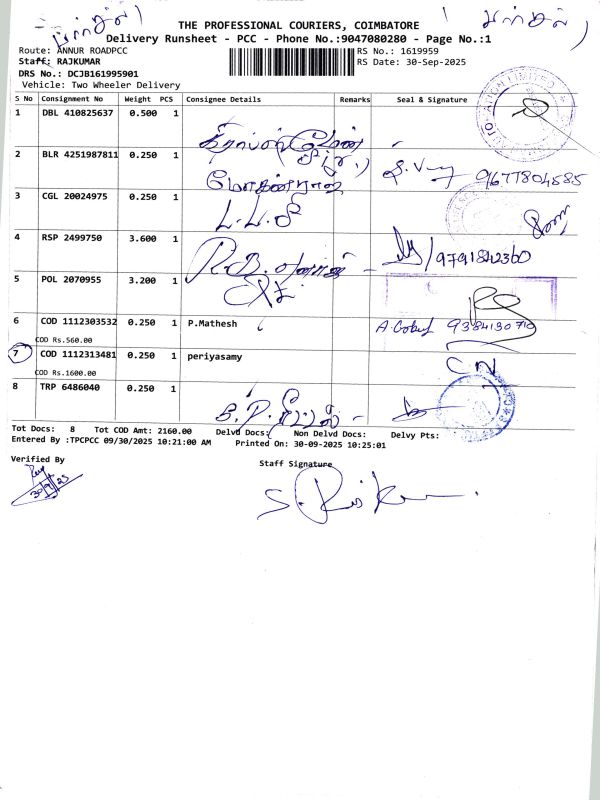 (பார்சல்)
(பார்சல்)
THE PROFESSIONAL COURIERS, COIMBATORE
Delivery Runsheet - PCC - Phone No.:9047080280 - Page No.:1
Route: ANNUR ROADPCC
RS No.: 1619959
Staff: RAJKUMAR
RS Date: 30-Sep-2025
DRS No.: DCJB161995901
Vehicle: Two Wheeler Delivery
S No Consignment No Weight PCS Consignee Details Remarks Seal & Signature
1 DBL 410825637 0.500 1
2 BLR 4251987811 0.250 1 மோகன்ராஜ் 9677804585
3 CGL 20024975 0.250 1
4 RSP 2499750 3.600 1 9791842360
5 POL 2070955 3.200 1
6 COD 1112303532 0.250 1 P.Mathesh 9384130710
COD Rs.560.00
7 COD 1112313481 0.250 1 periyasamy CN
COD Rs.1600.00
8 TRP 6486040 0.250 1
Tot Docs: 8 Tot COD Amt: 2160.00 Delvd Docs: Non Delvd Docs: Delvy Pts:
Entered By :TPCPCC 09/30/2025 10:21:00 AM Printed On: 30-09-2025 10:25:01
Verified By
Staff Signature
30/9/25